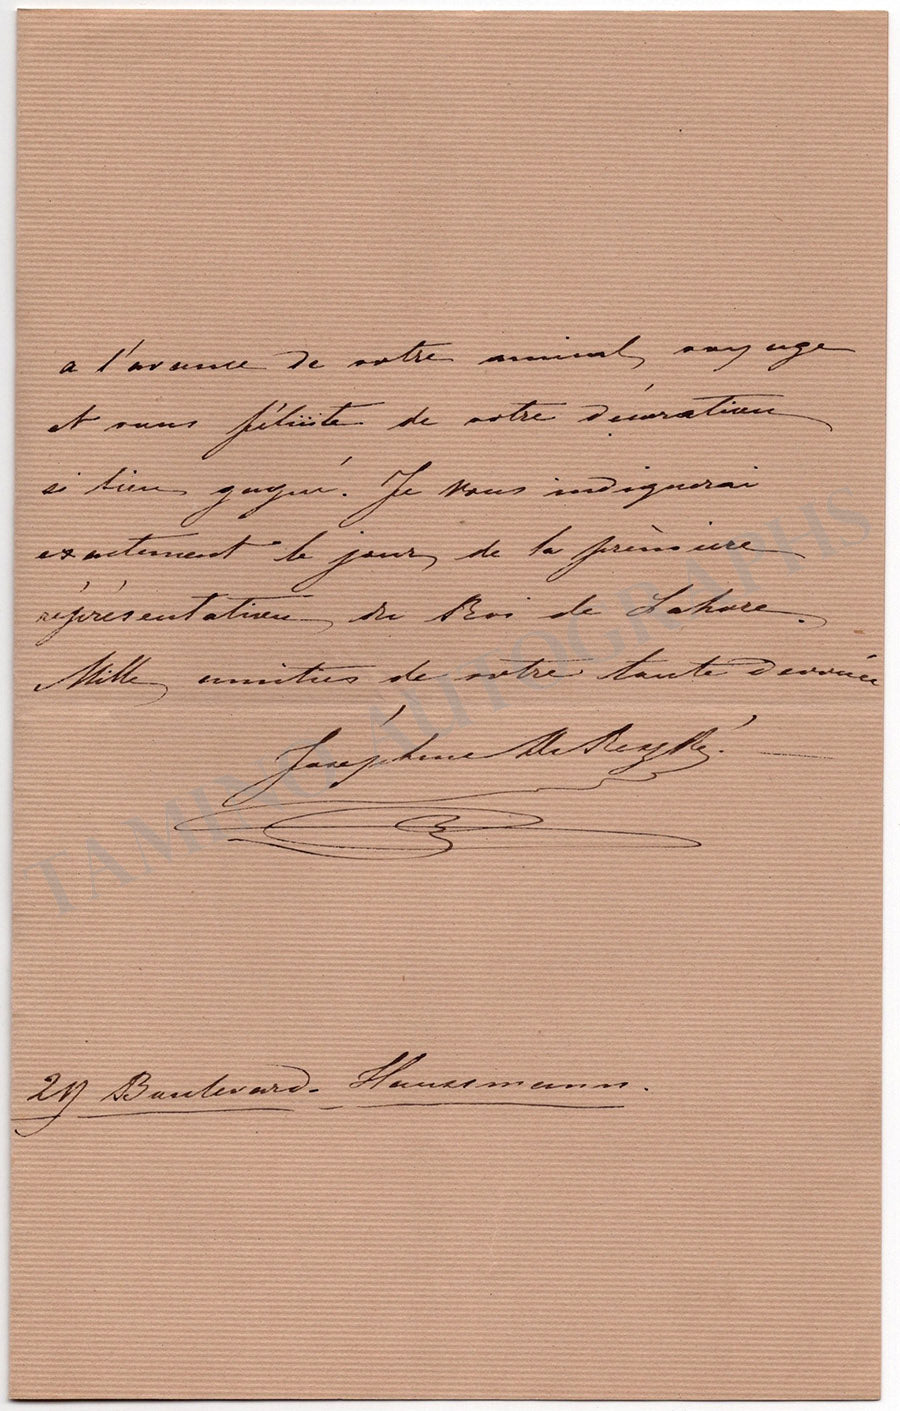 a l'avance de votre amical voyage
et vous félicite de votre décoration
si bien gagné. Je vous indiquerai
exactement le jour de la prèmiere
réprésentation du Roi de Lahore.
Mille amitiés de votre toute devouée
Joséphine De Reszké.
29 Boulevard Haussmann.
TAMINO AUTOGRAPHS